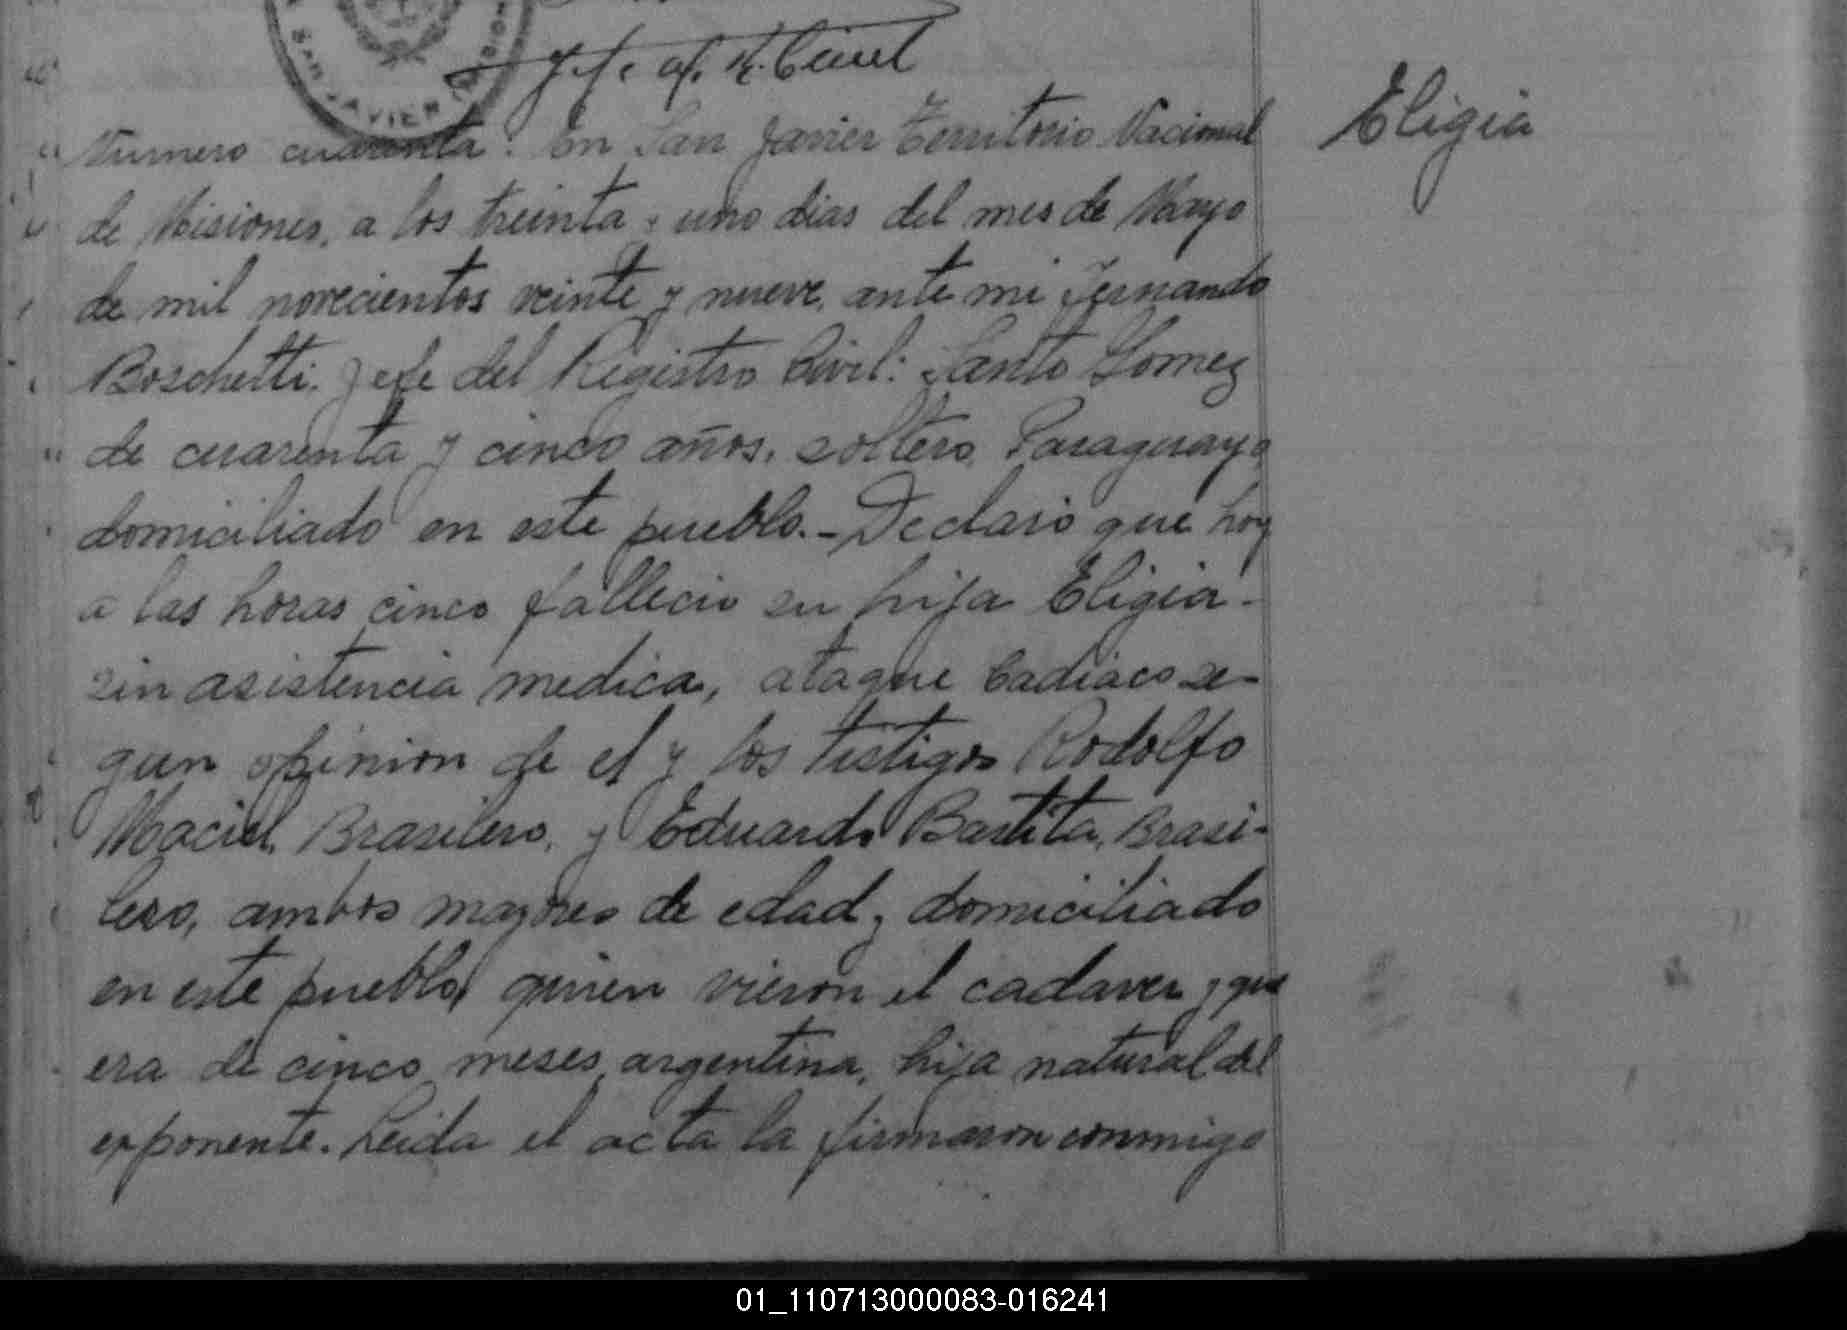 SAN JAVIER
Jefe del R. Civil
Eligia
Numero cuarenta. En San Javier Territorio Nacional
de Misiones, a los treinta y uno dias del mes de Mayo
de mil novecientos veinte y nueve, ante mi Fernando
Boschetti. Jefe del Registro Civil: Santo Gomez
de cuarenta y cinco años, soltero, Paraguayo
domiciliado en este pueblo.- Declaró que hoy
a las horas cinco fallecio su hija Eligia-
sin asistencia medica, ataque Cadiaco se-
gun opinion de el y los testigos Rodolfo
Maciel, Brasilero, y Eduardo Bastita, Brasi-
lero, ambos mayores de edad y domiciliado
en este pueblo, quien vieron el cadaver y que
era de cinco meses, argentina, hija natural del
exponente. Leida el acta la firmaron conmigo
01_110713000083-016241